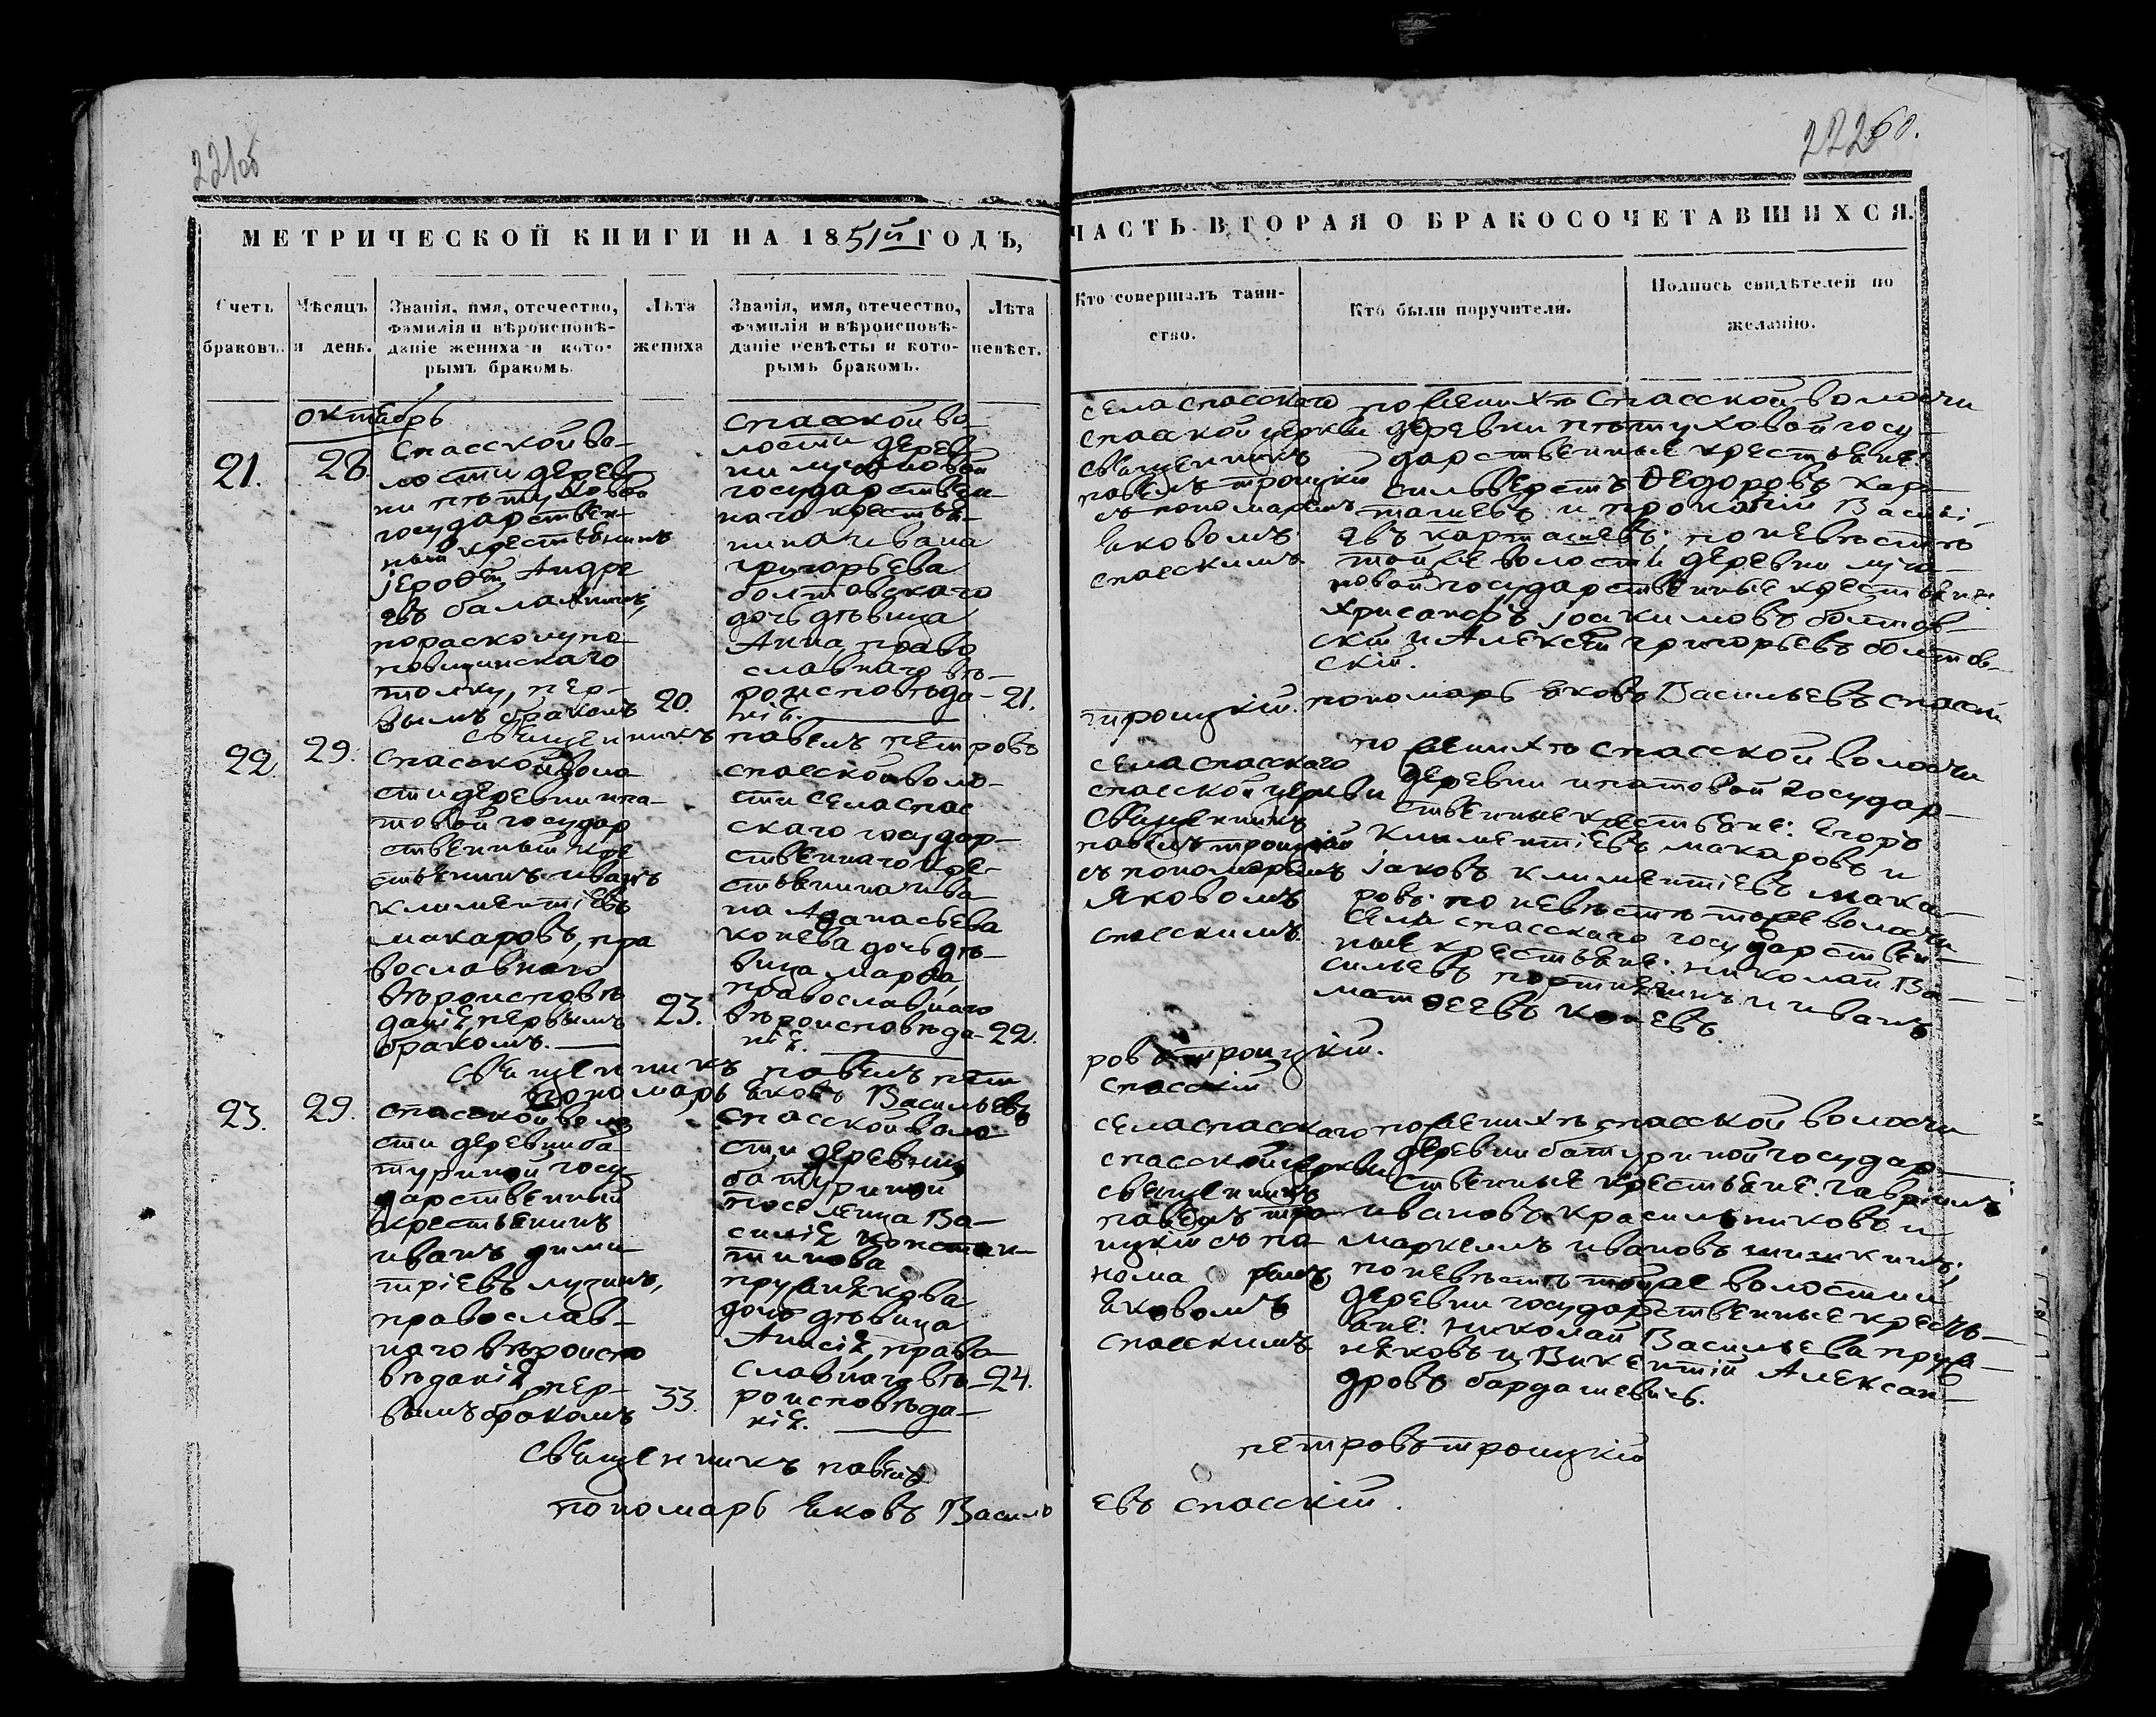 221об
22260.
МЕТРИЧЕСКОЙ КНИГИ НА 1851й ГОДЪ,
ЧАСТЬ ВТОРАЯ О БРАКОСОЧЕТАВШИХСЯ.
Счетъ браковъ.
Мѣсяцъ и день.
Званія, имя, отечество,
фамилія и вѣроисповѣ-
даніе жениха и кото-
рымъ бракомъ.
Лѣта жениха
Званія, имя, отечество,
фамилія и вѣроисповѣ-
даніе невѣсты и кото-
рымъ бракомъ.
Лѣта невѣст.
Кто совершалъ таин-
ство.
Кто были поручители.
Подпись свидѣтелей по
желанію.
октябрь
21.
28.
Спасской во-
лости дерев
ни пѣтуховой
государствен-
ный крестьянинъ
јерофей Андре
евъ балахнинъ,
пораскольупо-
повщинскаго
толку, пер-
вымъ бракомъ
20.
спасской во-
лости дерев
ни лучановой
государствен-
наго крестья-
нина Ивана
григорьева
болтовскаго
дочь дѣвица
Анна, право
славнаго вѣ-
роисповѣда-
нія.
21.
села спасскаго
спасской церкви
священникъ
павелъ троицкій
съ пономаремъ
Яковомъ
спасскимъ
по женихѣ спасской волости
деревни пѣтуховой госу-
дарственные крестьяне:
сильверстъ Ѳедоровъ кар-
ташевъ и прокопій Василі-
евъ карташевъ; по невѣстѣ
той же волости деревни луча-
новой государственные крестьяне:
хрисанфъ јоакимовъ болтов-
скій и Алексѣй григорьевъ болтов-
скій.
священникъ павелъ петровъ троицкій. пономарь Яковъ Васильевъ спасскій
22
29.
спасской воло
сти деревни ипа-
товой государ
ственный кре
стьянинъ иванъ
климентіевъ
макаровъ, пра
вославнаго
вѣроисповѣ
данія, первымъ
бракомъ.
23.
спасской воло-
сти села спас
скаго государ-
ственнаго кре-
стьянина ива-
на Аѳанасьева
конева дочь дѣ-
вица марѳа,
православнаго
вѣроисповѣда-
нія.
22.
села спасскаго
спасской церкви
священникъ
павелъ троицкій
съ пономаремъ
Яковомъ
спасскимъ.
по женихѣ спасской волости
деревни ипатовой государ-
ственные крестьяне: Егоръ
климентіевъ макаровъ и
јаковъ климентіевъ мака-
ровъ: по невѣстѣ той же волости
села спасскаго государствен-
ные крестьяне: николай Ва-
сильевъ портнягинъ и иванъ
матѳеевъ коневъ.
священникъ павелъ пет
ровъ троицкій.
пономарь Яковъ Васильевъ
спасскій
23.
29.
спасской воло
сти деревни ба-
туриной госу
дарственный
крестьянинъ
иванъ дими-
тріевъ лузинъ,
православ-
наго вѣроиспо
вѣданія, пер-
вымъ бракомъ
33.
спасской воло
сти деревни
батуриной
поселенца Ва-
силія констан-
тинова
пружнякова
дочь дѣвица
Анисія, право
славнаго вѣ-
роисповѣда-
нія.
24.
села спасскаго
спасской церкви
священникъ
павелъ тро-
ицкій съ по-
нома ремъ
Яковомъ
спасскимъ
по женихѣ спасской волости
деревни батуриной государ-
ственные крестьяне: гавріилъ
ивановъ красильниковъ и
маркеллъ ивановъ шишкинъ;
по невѣстѣ той же волости и
деревни государственные кресть-
яне: николай Васильевъ пруж-
няковъ и Викентій Алексан-
дровъ бардашевичъ.
священникъ павелъ
петровъ троицкій
пономарь Яковъ Василь
евъ спасскій.